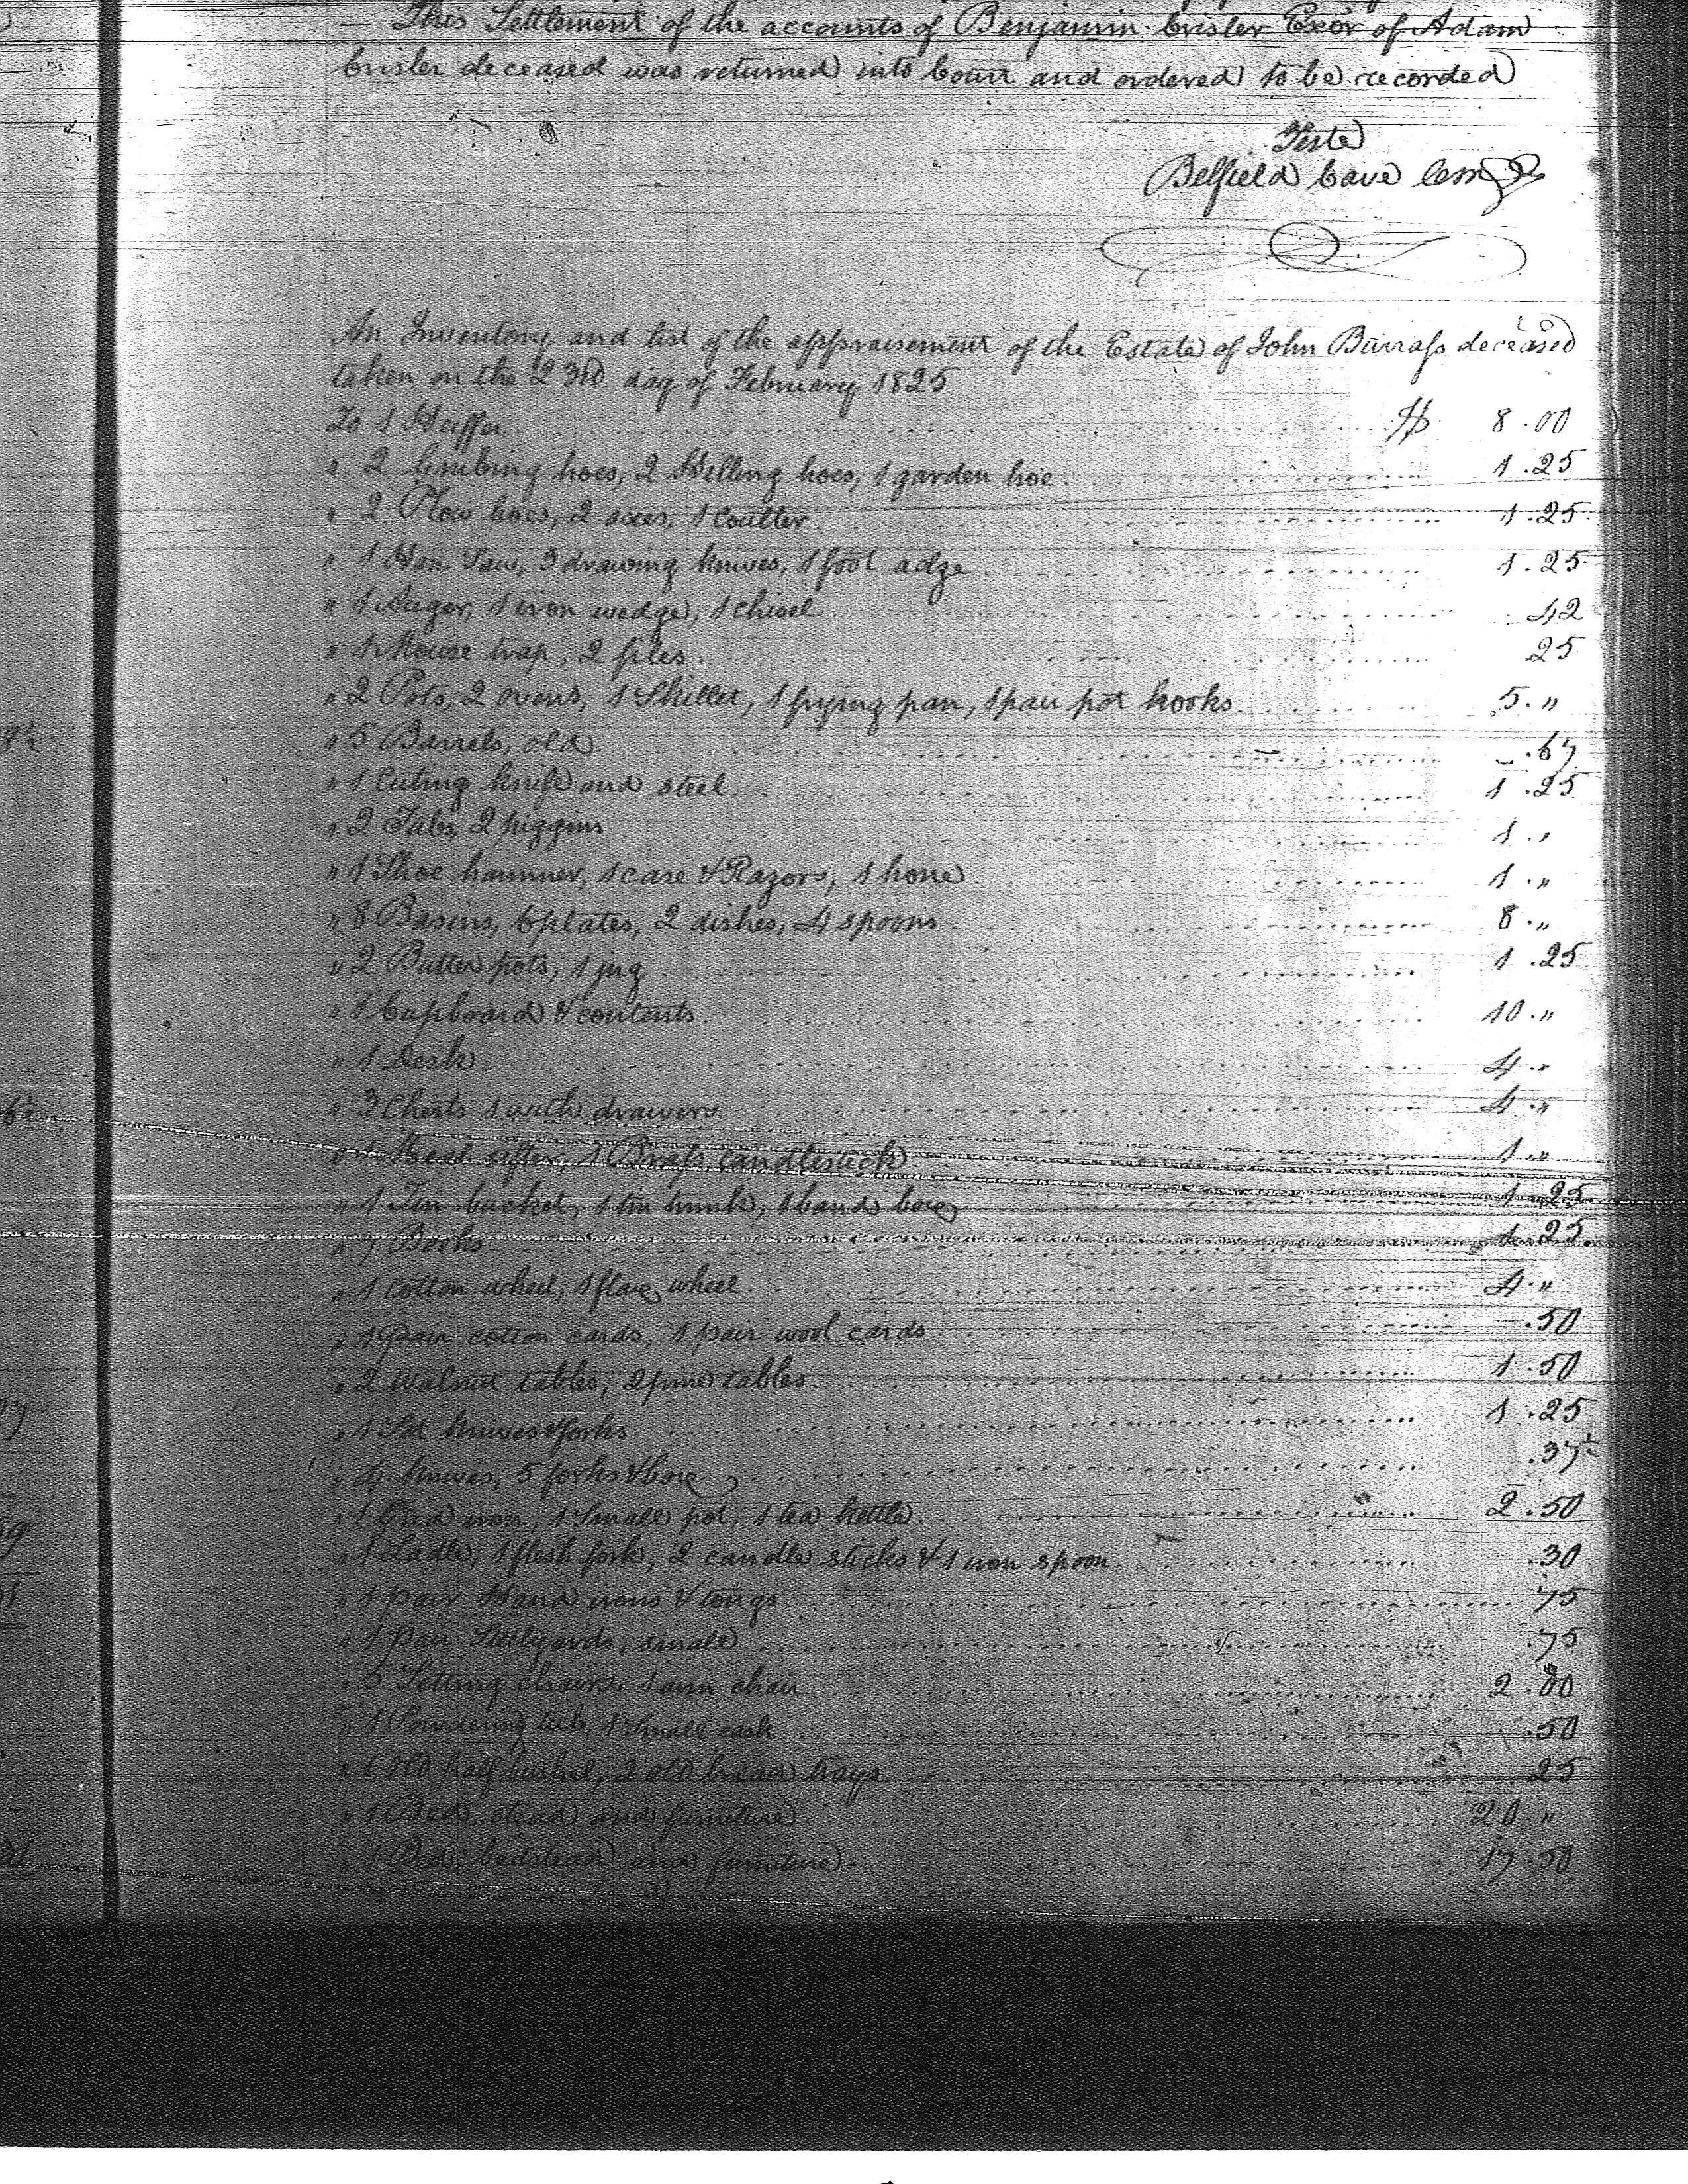 This Settlement of the accounts of Benjamin Crisler Exor of Adam
Crisler deceased was returned into Court and ordered to be recorded
Teste
Belfield Cave
An Inventory and list of the appraisement of the Estate of John Burrass deceased
taken on the 23rd day of February 1825
To 1 Heiffer $ 8.00
" 2 Grubing hoes, 2 Hilling hoes, 1 garden hoe 1.25
" 2 Plow hoes, 2 axes, 1 Coulter 1.25
" 1 Han. Saw, 3 drawing knives, 1 foot adze 1.25
" 1 Auger, 1 iron wedge, 1 chisel .42
" 1 Mouse trap, 2 files 25
" 2 Pots, 2 ovens, 1 Skillet, 1 frying pan, 1 pair pot hooks 5."
" 5 Barrels, old .67
" 1 Cuting knife and steel 1.25
" 2 Tubs, 2 piggins 1."
" 1 Shoe hammer, 1 case & Razors, 1 hone 1."
" 8 Basins, 6 plates, 2 dishes, 4 spoons 8."
" 2 Butter pots, 1 jug 1.25
" 1 Cupboard & contents 10."
" 1 Desk 4."
" 3 Chests 1 with drawers 4."
" 1 Meal sifter, 1 Brass candlestick 1."
" 1 Tin bucket, 1 tin trunk, 1 band box 1.25
" 7 Books 1.25
" 1 Cotton wheel, 1 flax wheel 4."
" 1 Pair cotton cards, 1 pair wool cards .50
" 2 Walnut tables, 2 pine tables 1.50
" 1 Set knives & forks 1.25
" 4 knives, 5 forks & box .37½
" 1 Grid iron, 1 Small pot, 1 tea kettle 2.50
" 1 Ladle, 1 flesh fork, 2 candle sticks & 1 iron spoon .30
" 1 pair Hand irons & tongs 75
" 1 pair Steelyards, small .75
" 5 Setting chairs, 1 arm chair 2.00
" 1 Powdering tub, 1 Small cask .50
" 1 old half bushel, 2 old bread trays 25
" 1 Bed, stead and furniture 20."
" 1 Bed, bedstead and furniture 17.50